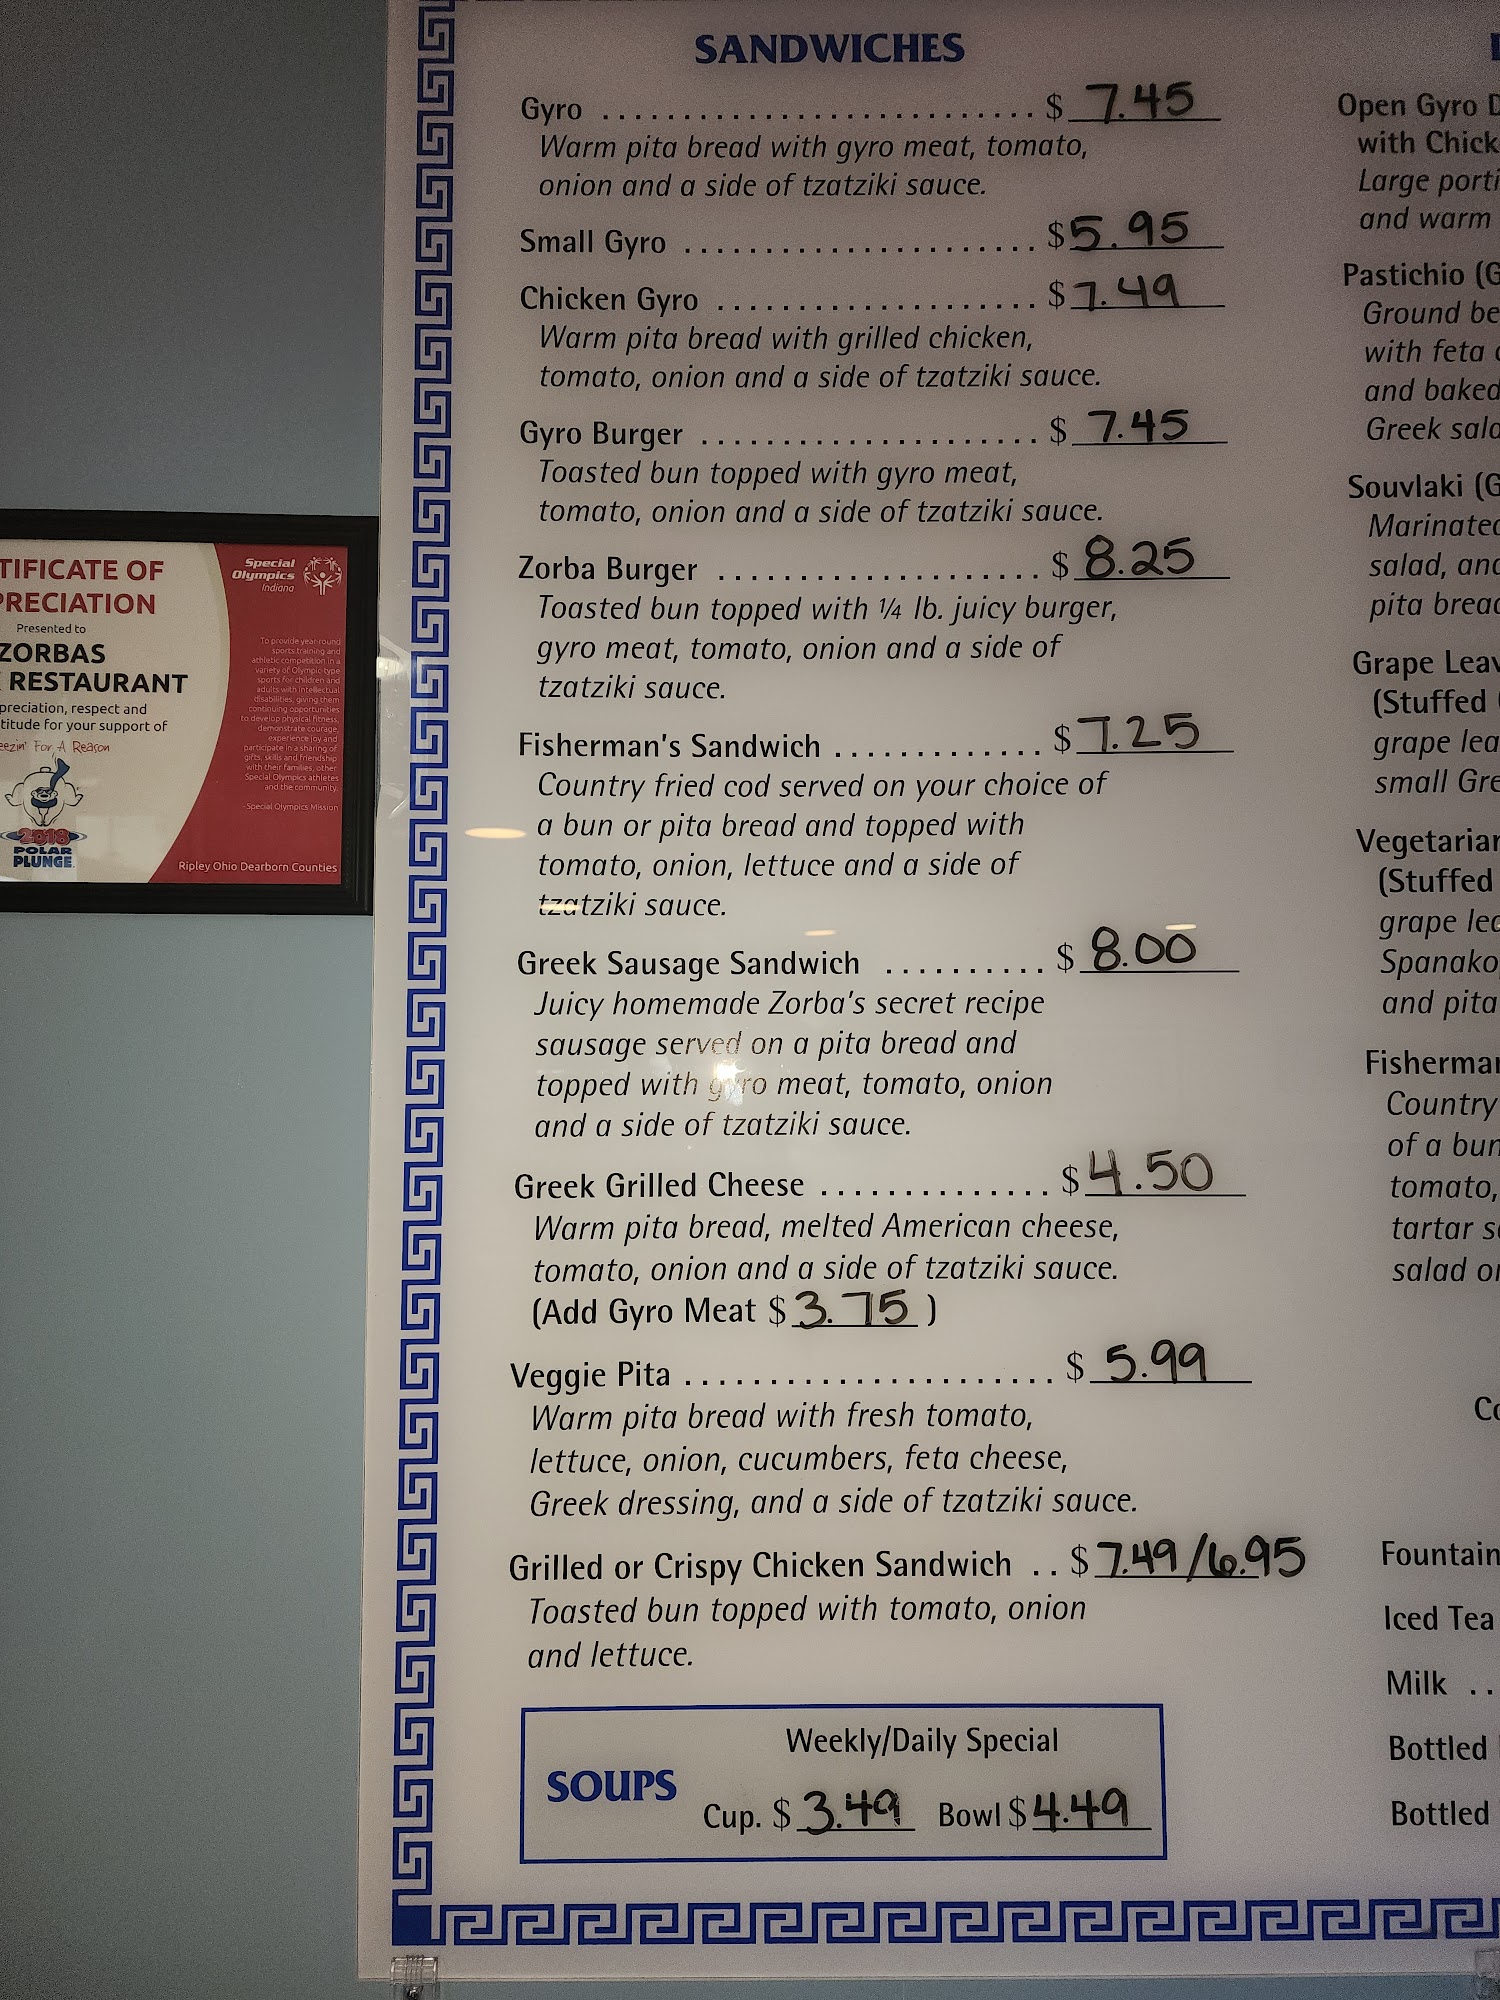 SANDWICHES
Gyro ............................ $ 7.45
Warm pita bread with gyro meat, tomato,
onion and a side of tzatziki sauce.
Small Gyro ...................... $ 5.95
Chicken Gyro .................... $ 7.49
Warm pita bread with grilled chicken,
tomato, onion and a side of tzatziki sauce.
Gyro Burger ..................... $ 7.45
Toasted bun topped with gyro meat,
tomato, onion and a side of tzatziki sauce.
Zorba Burger .................... $ 8.25
Toasted bun topped with ¼ lb. juicy burger,
gyro meat, tomato, onion and a side of
tzatziki sauce.
Fisherman's Sandwich ............. $ 7.25
Country fried cod served on your choice of
a bun or pita bread and topped with
tomato, onion, lettuce and a side of
tzatziki sauce.
Greek Sausage Sandwich .......... $ 8.00
Juicy homemade Zorba's secret recipe
sausage served on a pita bread and
topped with gyro meat, tomato, onion
and a side of tzatziki sauce.
Greek Grilled Cheese .............. $ 4.50
Warm pita bread, melted American cheese,
tomato, onion and a side of tzatziki sauce.
(Add Gyro Meat $ 3.75 )
Veggie Pita ....................... $ 5.99
Warm pita bread with fresh tomato,
lettuce, onion, cucumbers, feta cheese,
Greek dressing, and a side of tzatziki sauce.
Grilled or Crispy Chicken Sandwich .. $ 7.49/6.95
Toasted bun topped with tomato, onion
and lettuce.
Weekly/Daily Special
SOUPS
Cup. $ 3.49 Bowl $ 4.49
Open Gyro D
with Chick
Large porti
and warm
Pastichio (G
Ground be
with feta
and baked
Greek sala
Souvlaki (G
Marinated
salad, and
pita bread
Grape Leav
(Stuffed
grape lea
small Gre
Vegetarian
(Stuffed
grape lea
Spanako
and pita
Fisherman
Country
of a bun
tomato,
tartar s
salad or
Co
Fountain
Iced Tea
Milk ..
Bottled
Bottled
TIFICATE OF
PRECIATION
Presented to
ZORBAS
RESTAURANT
preciation, respect and
titude for your support of
eezin' For A Reason
2018
POLAR
PLUNGE
Special
Olympics
Indiana
To provide year-round
sports training and
athletic competition in a
variety of Olympic-type
sports for children and
adults with intellectual
disabilities, giving them
continuing opportunities
to develop physical fitness,
demonstrate courage,
experience joy and
participate in a sharing of
gifts, skills and friendship
with their families, other
Special Olympics athletes
and the community.
-Special Olympics Mission
Ripley Ohio Dearborn Counties